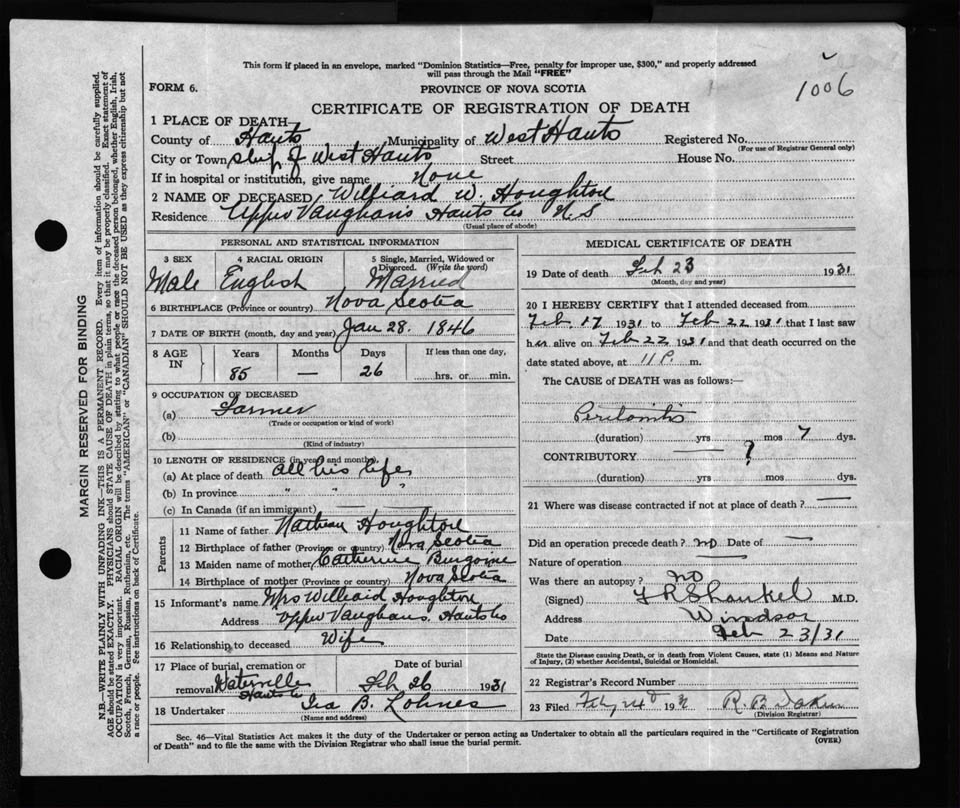 This form if placed in an envelope, marked "Dominion Statistics—Free, penalty for improper use, $300," and properly addressed
will pass through the Mail "FREE"
1006
FORM 6.
PROVINCE OF NOVA SCOTIA
CERTIFICATE OF REGISTRATION OF DEATH
1 PLACE OF DEATH—
County of Hants Municipality of West Hants Registered No.
(For use of Registrar General only)
City or Town of West Hants Street House No.
If in hospital or institution, give name None
2 NAME OF DECEASED Williard W. Houghton
Residence Upper Vaughans Hants Co N.S
(Usual place of abode)
PERSONAL AND STATISTICAL INFORMATION
3 SEX 4 RACIAL ORIGIN 5 Single, Married, Widowed or Divorced. (Write the word)
Male English Married
6 BIRTHPLACE (Province or country) Nova Scotia
7 DATE OF BIRTH (month, day and year) Jan 28. 1846
8 AGE IN Years Months Days If less than one day,
85 — 26 hrs. or min.
9 OCCUPATION OF DECEASED
(a) Farmer
(Trade or occupation or kind of work)
(b)
(Kind of industry)
10 LENGTH OF RESIDENCE (in years and months)
(a) At place of death all his life
(b) In province " " "
(c) In Canada (if an immigrant) — —
Parents
11 Name of father Nathan Houghton
12 Birthplace of father (Province or country) Nova Scotia
13 Maiden name of mother Catherine Burgoine
14 Birthplace of mother (Province or country) Nova Scotia
15 Informant's name Mrs Williard Houghton
Address Upper Vaughans. Hants Co
16 Relationship to deceased Wife
17 Place of burial, cremation or removal Date of burial
Waterville Hants Co Feb 26 1931
18 Undertaker Ira B. Lohnes
(Name and address)
MEDICAL CERTIFICATE OF DEATH
19 Date of death Feb 23 1931
(Month, day and year)
20 I HEREBY CERTIFY that I attended deceased from
Feb. 17 1931 to Feb 22 1931 that I last saw
him alive on Feb 22 1931 and that death occurred on the
date stated above, at 11 P. m.
The CAUSE of DEATH was as follows:—
Peritonitis
(duration) yrs mos 7 dys.
CONTRIBUTORY ?
(duration) yrs mos dys.
21 Where was disease contracted if not at place of death? —
Did an operation precede death? no Date of —
Nature of operation —
Was there an autopsy? no
(Signed) Shankel M.D.
Address Windsor
Date Feb 23/31
State the Disease causing Death, or in death from Violent Causes, state (1) Means and Nature
of Injury, (2) whether Accidental, Suicidal or Homicidal.
22 Registrar's Record Number
23 Filed Feby 24 193 R. B. Dakin
(Division Registrar)
Sec. 46—Vital Statistics Act makes it the duty of the Undertaker or person acting as Undertaker to obtain all the particulars required in the "Certificate of Registration
of Death" and to file the same with the Division Registrar who shall issue the burial permit.
(OVER)
MARGIN RESERVED FOR BINDING
N.B.—WRITE PLAINLY WITH UNFADING INK—THIS IS A PERMANENT RECORD. Every item of information should be carefully supplied.
AGE should be stated EXACTLY. PHYSICIANS should STATE CAUSE OF DEATH in plain terms, so that it may be properly classified. Exact statement of
OCCUPATION is very important. RACIAL ORIGIN will be described by stating to what people or race the deceased person belonged, whether English, Irish,
Scotch, French, German, Russian, Ruthenian, etc. The terms "AMERICAN" or "CANADIAN" SHOULD NOT BE USED as they express citizenship but not
a race or people. See instructions on back of Certificate.